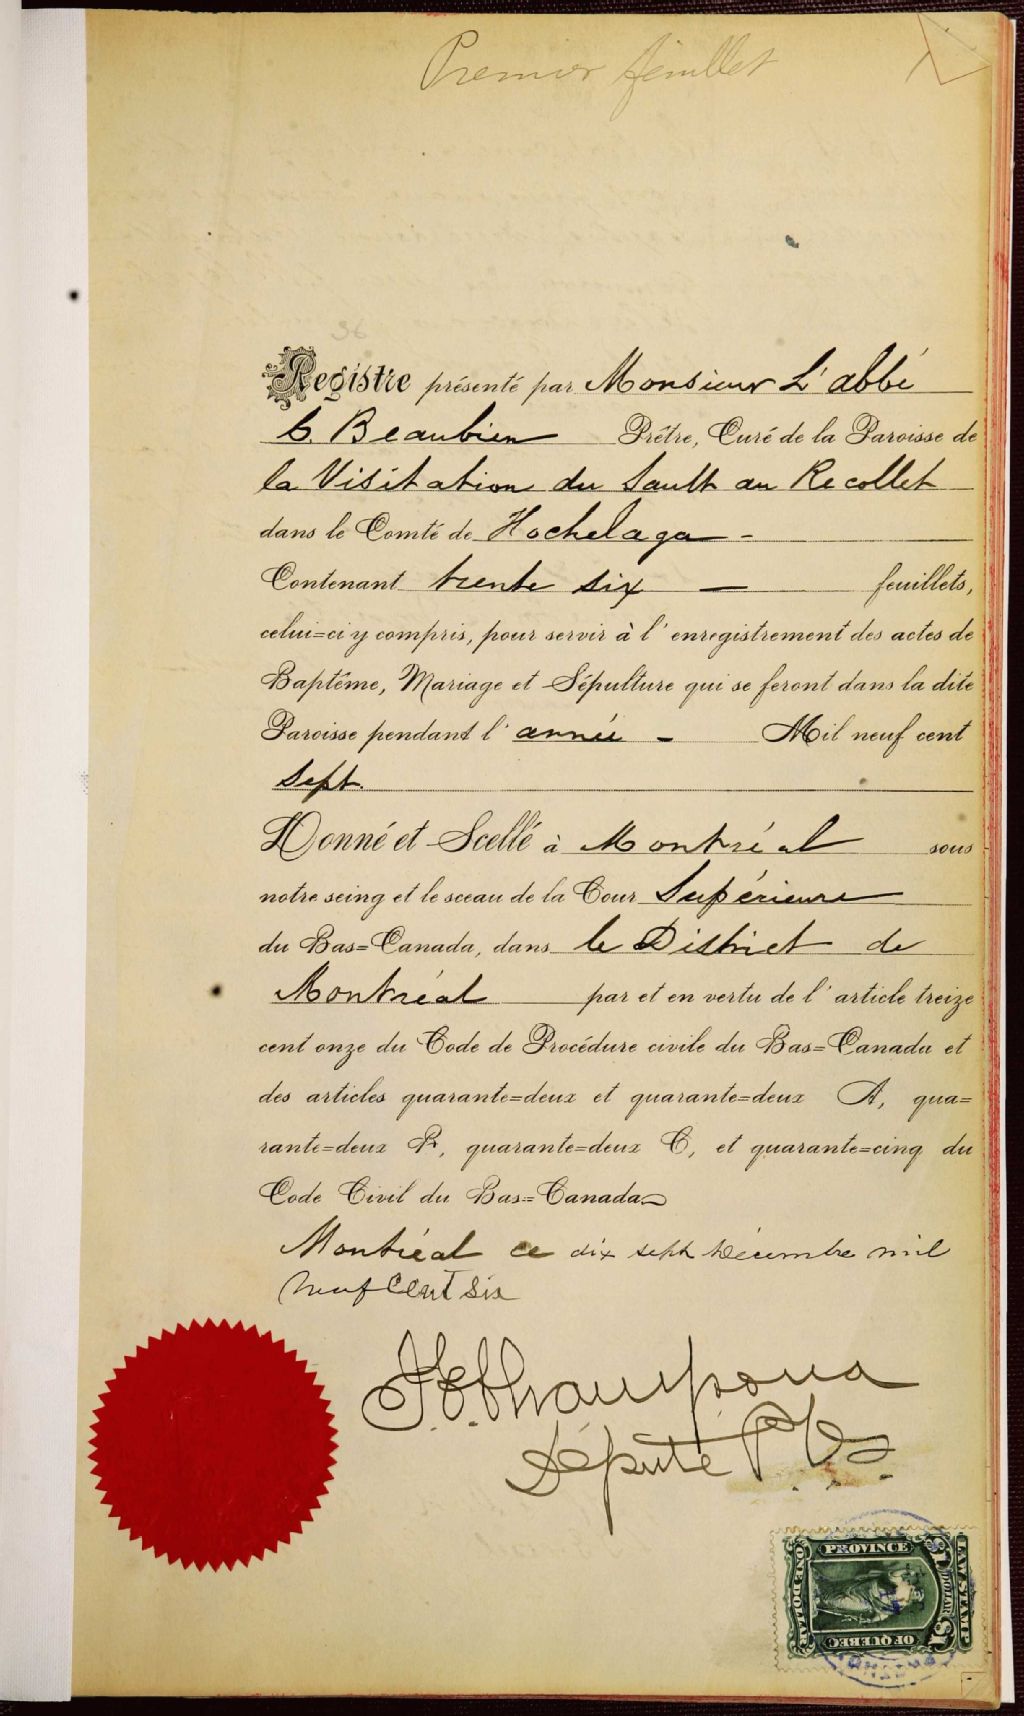 Premier feuillet
Registre présenté par Monsieur L'abbé
C. Beaubien Prêtre, Curé de la Paroisse de
la Visitation du Sault au Recollet
dans le Comté de Hochelaga -
Contenant trente six — feuillets,
celui=ci y compris, pour servir à l'enregistrement des actes de
Baptême, Mariage et Sépulture qui se feront dans la dite
Paroisse pendant l'année - Mil neuf cent
Sept.
Donné et Scellé à Montréal sous
notre seing et le sceau de la Cour Supérieure
du Bas=Canada, dans le District de
Montréal par et en vertu de l'article treize
cent onze du Code de Procédure civile du Bas=Canada et
des articles quarante=deux et quarante=deux A, qua=
rante=deux B, quarante=deux C, et quarante=cinq du
Code Civil du Bas=Canada
Montréal ce dix sept Décembre mil
neuf Cent six
Député P.
LAW STAMP
$1 DOLLAR $1
PROVINCE OF QUEBEC
ONE DOLLAR